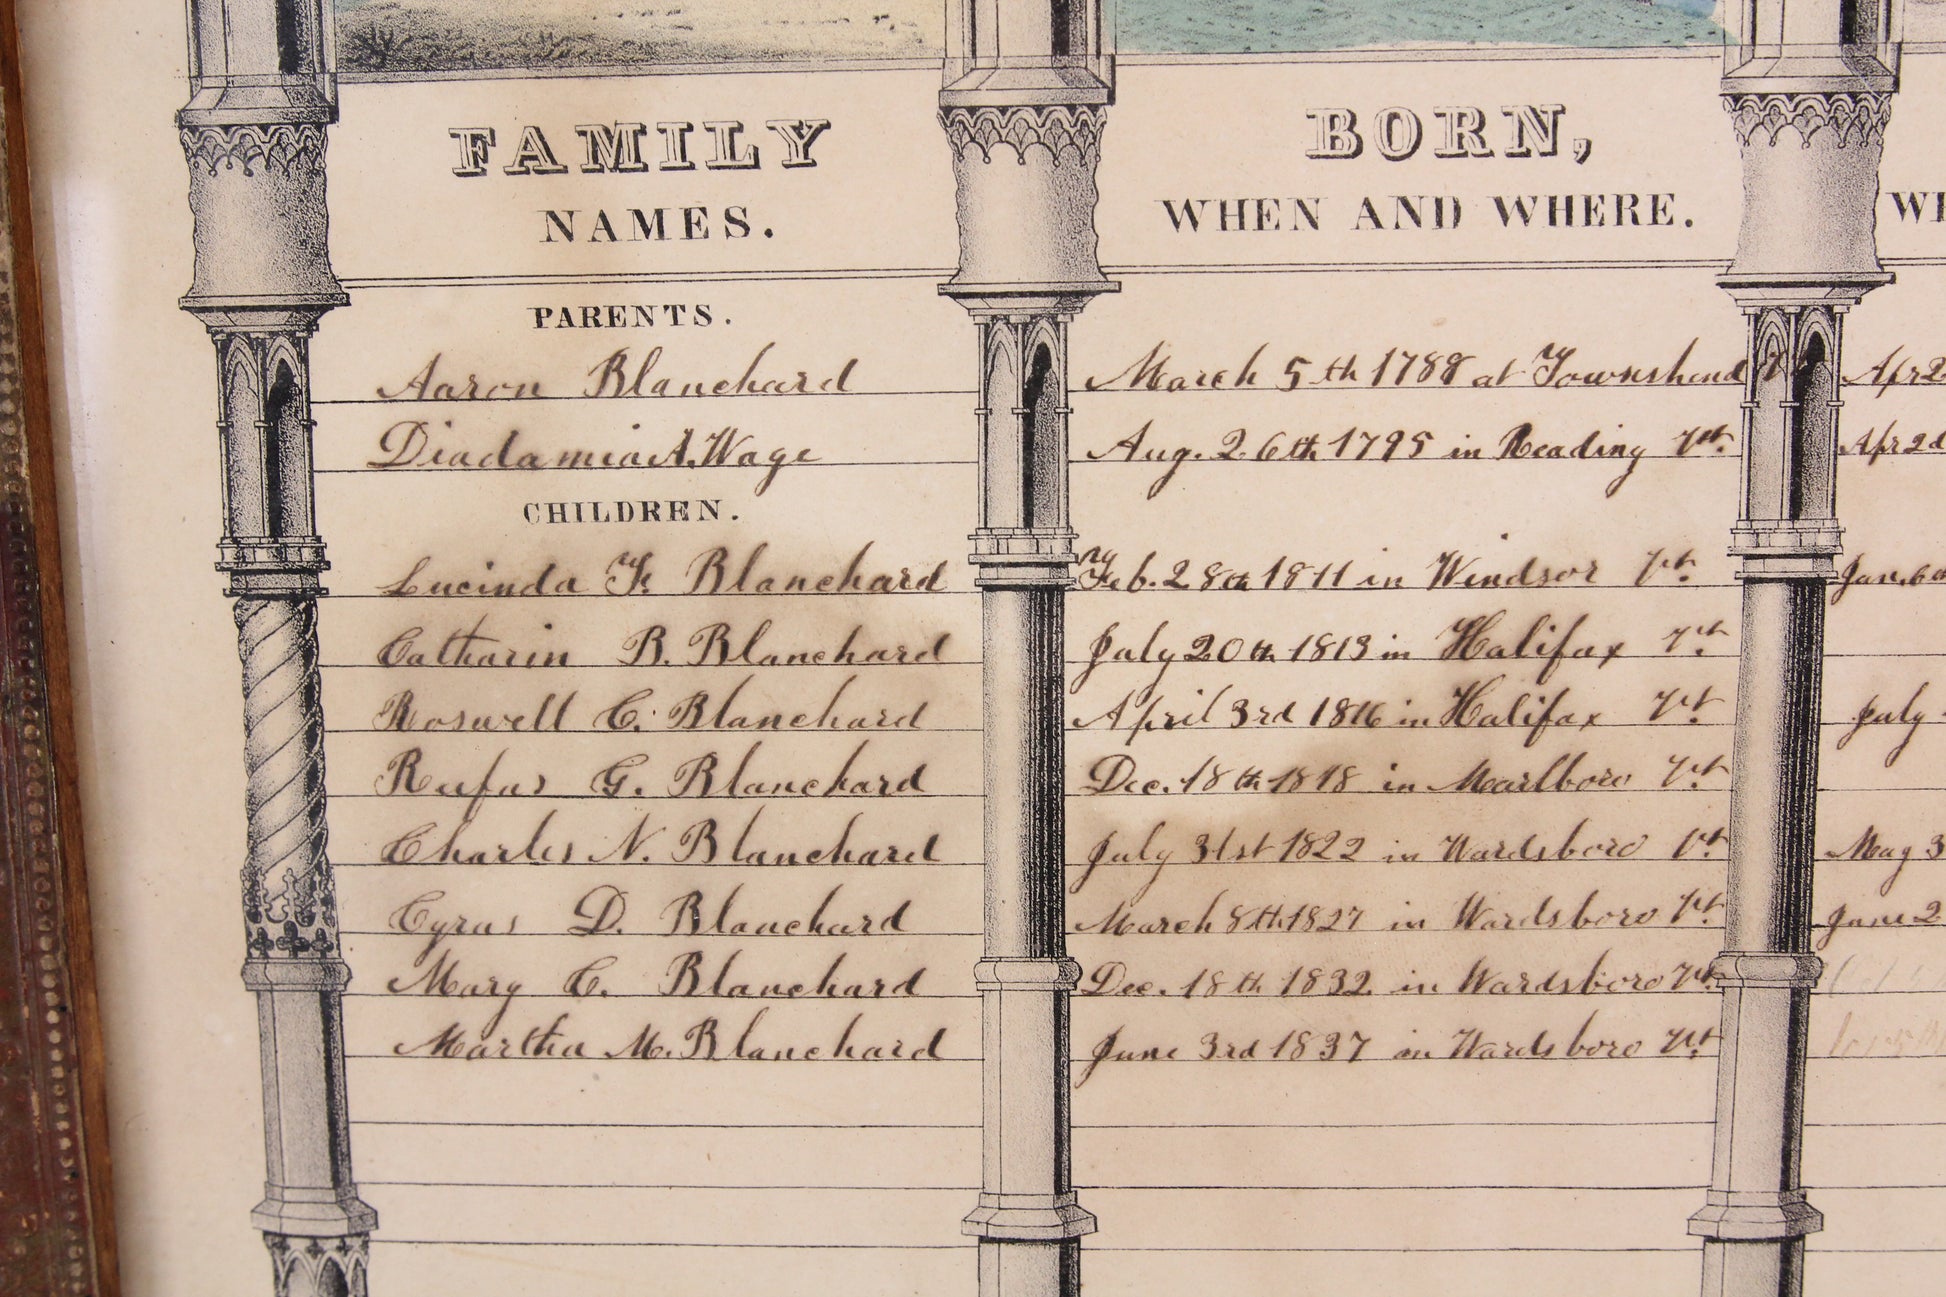 FAMILY BORN,
NAMES. WHEN AND WHERE.
PARENTS.
Aaron Blanchard March 5th 1788 at Townshend Vt Apr 2
Diadamia A. Wage Aug. 26th 1795 in Reading Vt. Apr 2d
CHILDREN.
Lucinda F. Blanchard Feb. 28th 1811 in Windsor Vt. Jan. 6
Catharin B. Blanchard July 20th 1813 in Halifax Vt.
Roswell C. Blanchard April 3rd 1816 in Halifax Vt. July
Rufus G. Blanchard Dec. 18th 1818 in Marlboro Vt
Charles N. Blanchard July 31st 1822 in Wardsboro Vt. May 3
Cyrus D. Blanchard March 8th 1827 in Wardsboro Vt. June 2
Mary C. Blanchard Dec. 18th 1832 in Wardsboro Vt.
Martha M. Blanchard June 3rd 1837 in Wardsboro Vt.